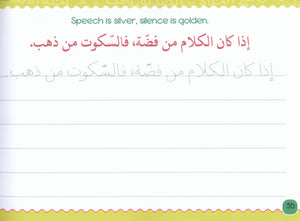 Speech is silver, silence is golden.
إذا كان الكلام من فضّة، فالسّكوت من ذهب.
إذا كان الكلام من فضّة، فالسّكوت من ذهب.